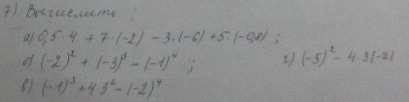 7) Вычислить :
а) 0,5·4 + 7·(-2) - 3·(-6) + 5·(-0,8) ;
б) (-2)² + (-3)³ - (-1)⁴ ; г) (-5)² - 4·3(-2)
в) (-1)³ + 4·3² - (-2)⁴